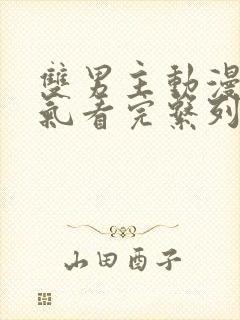 雙男主動漫
氣看完繫列
山田酉子